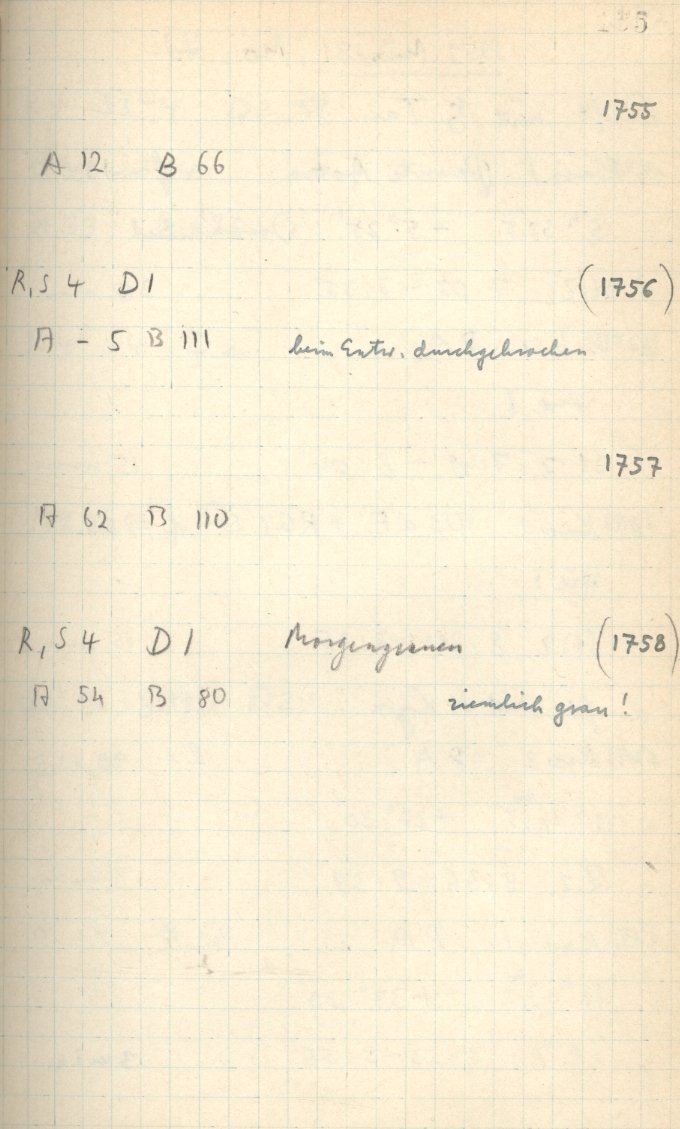 1755
A 12 B 66
R, S 4 D 1 (1756)
A - 5 B 111 beim Entw. durchgebrochen
1757
A 62 B 110
R, S 4 D 1 Morgengrauen (1758)
A 54 B 80 ziemlich grau!